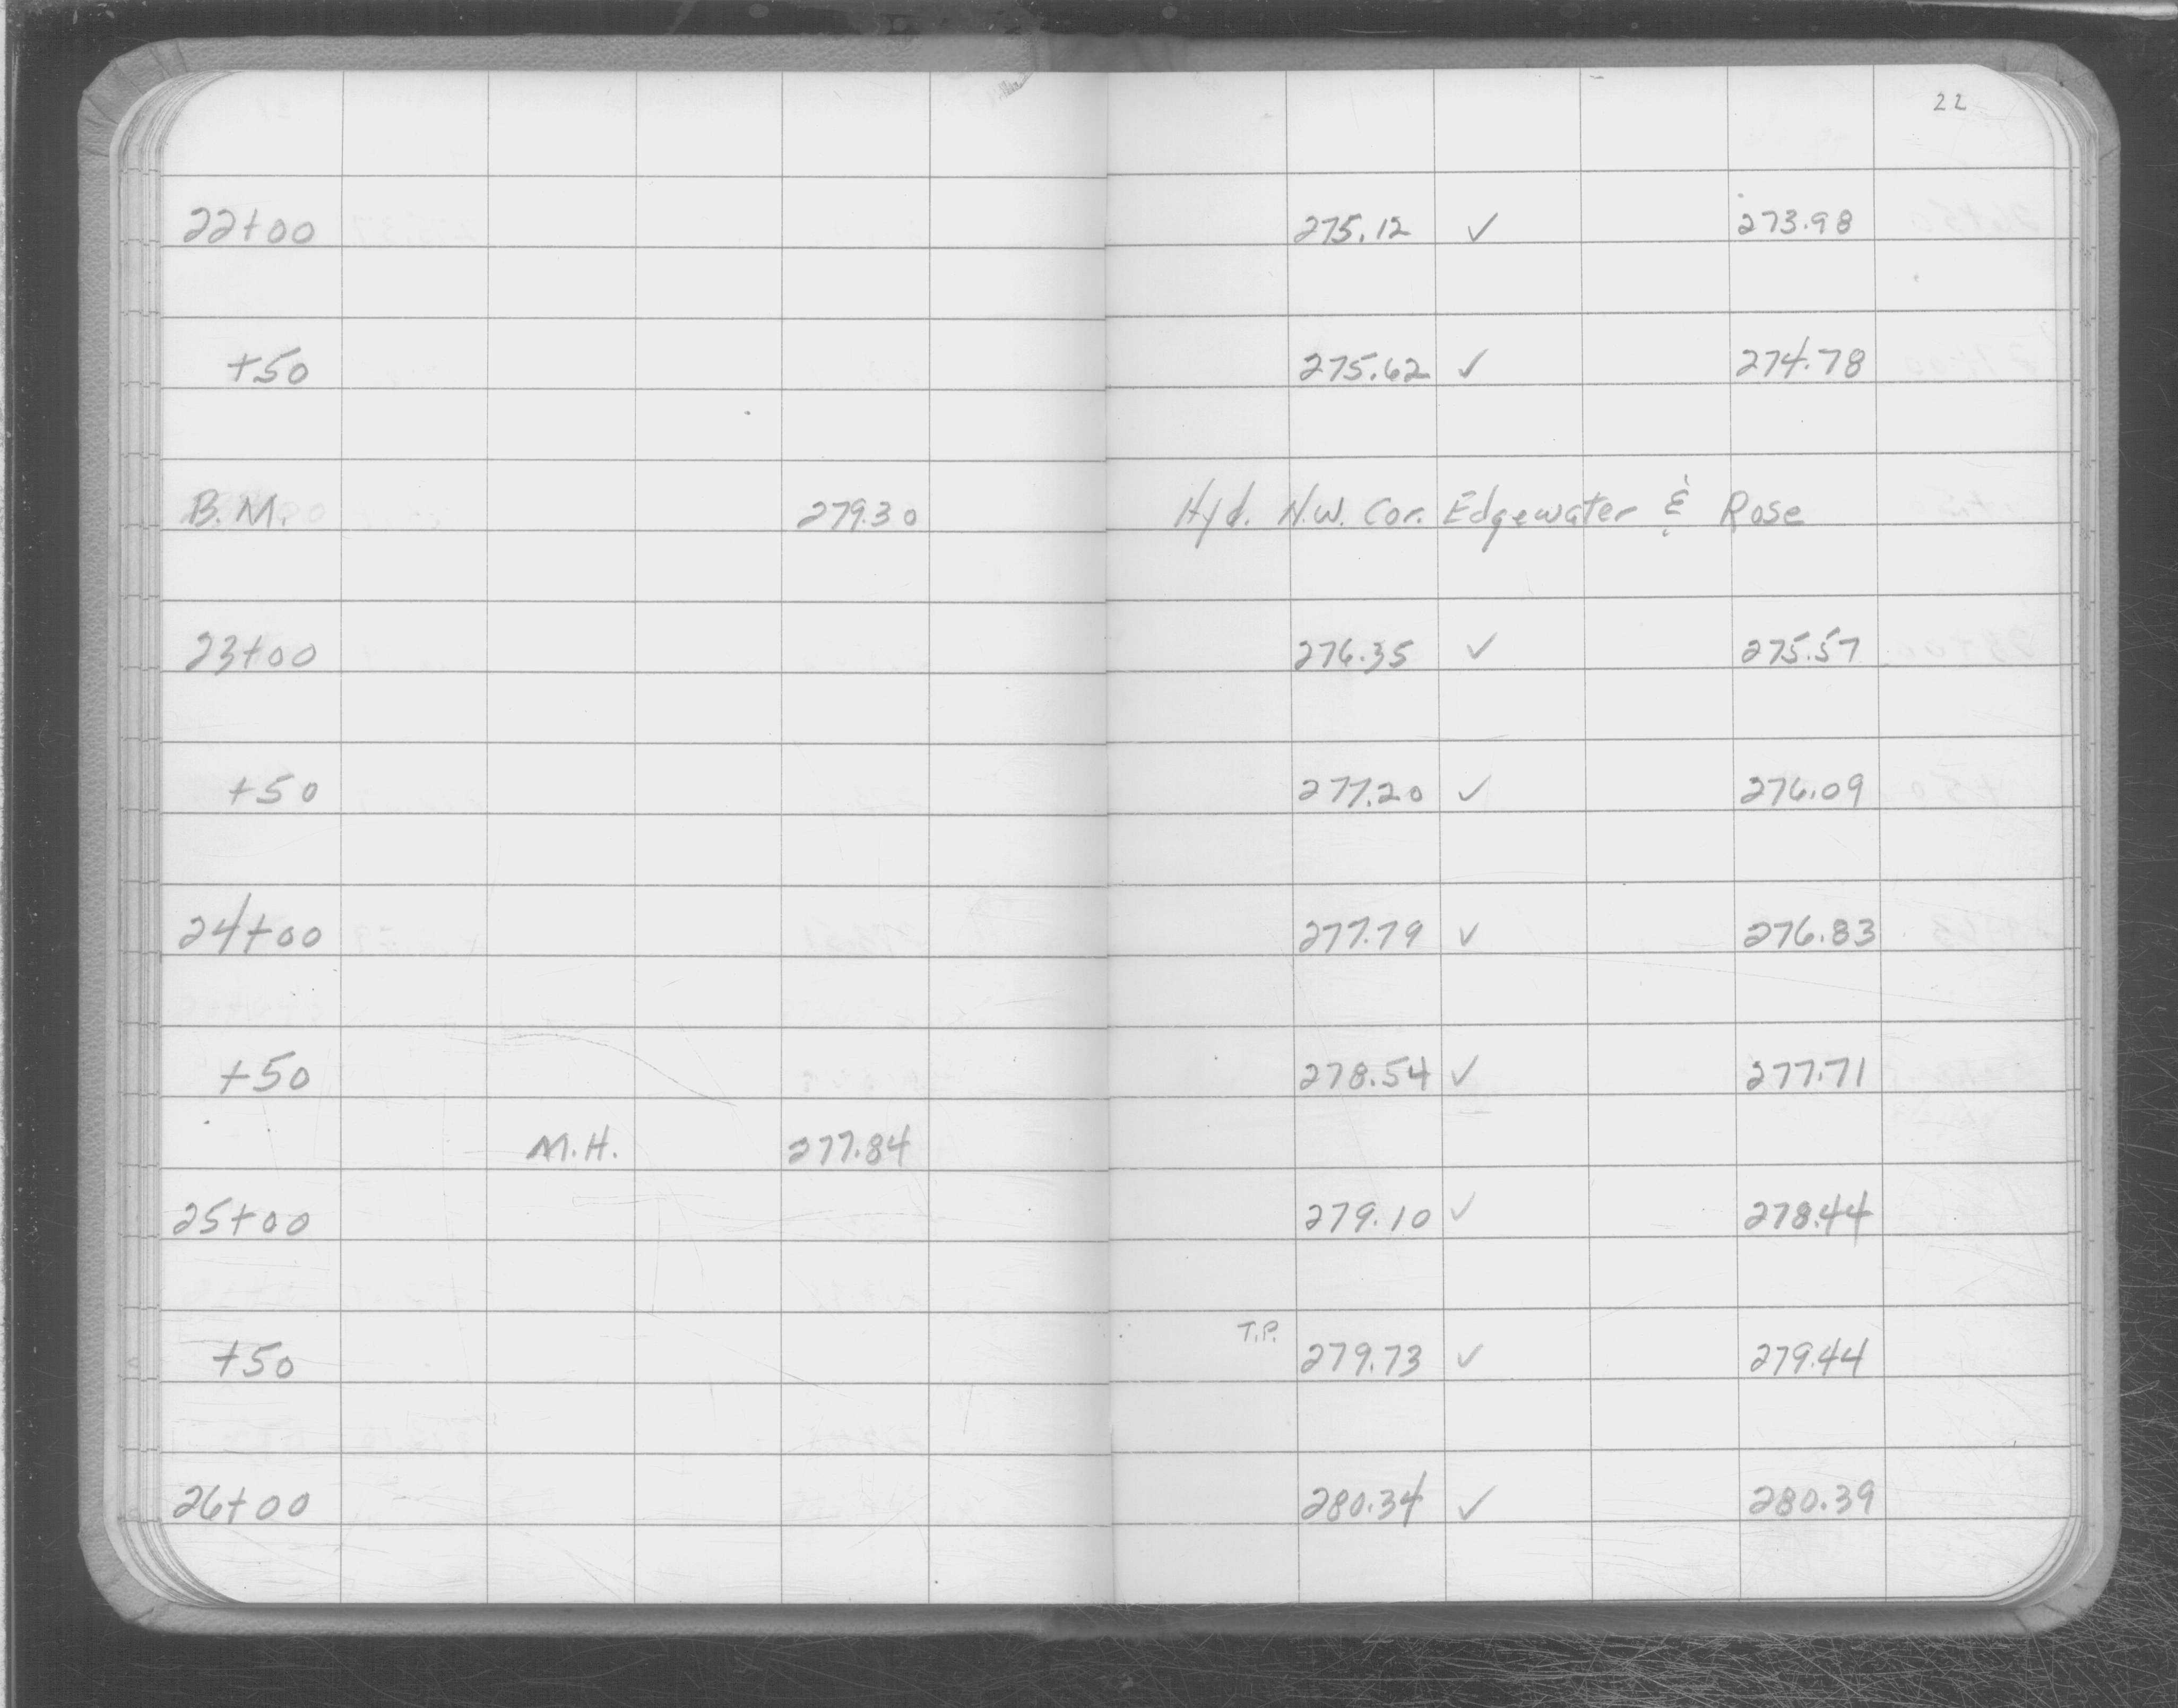 22
22+00 275.12 ✓ 273.98
+50 275.62 ✓ 274.78
B.M. 279.30 Hyd. N.W. Cor. Edgewater & Rose
23+00 276.35 ✓ 275.57
+50 277.20 ✓ 276.09
24+00 277.79 ✓ 276.83
+50 278.54 ✓ 277.71
M.H. 277.84
25+00 279.10 ✓ 278.44
T.P.
+50 279.73 ✓ 279.44
26+00 280.34 ✓ 280.39